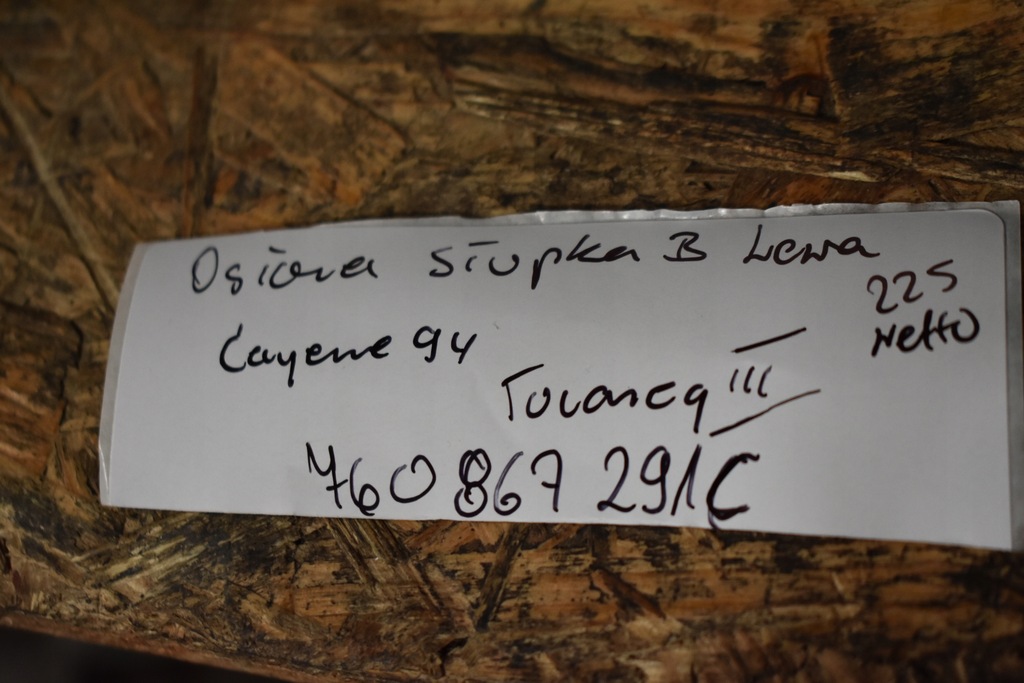 Osiova słupka B Lewa
225
Netto
Cayenne 94
Touareg III
760 867 291C